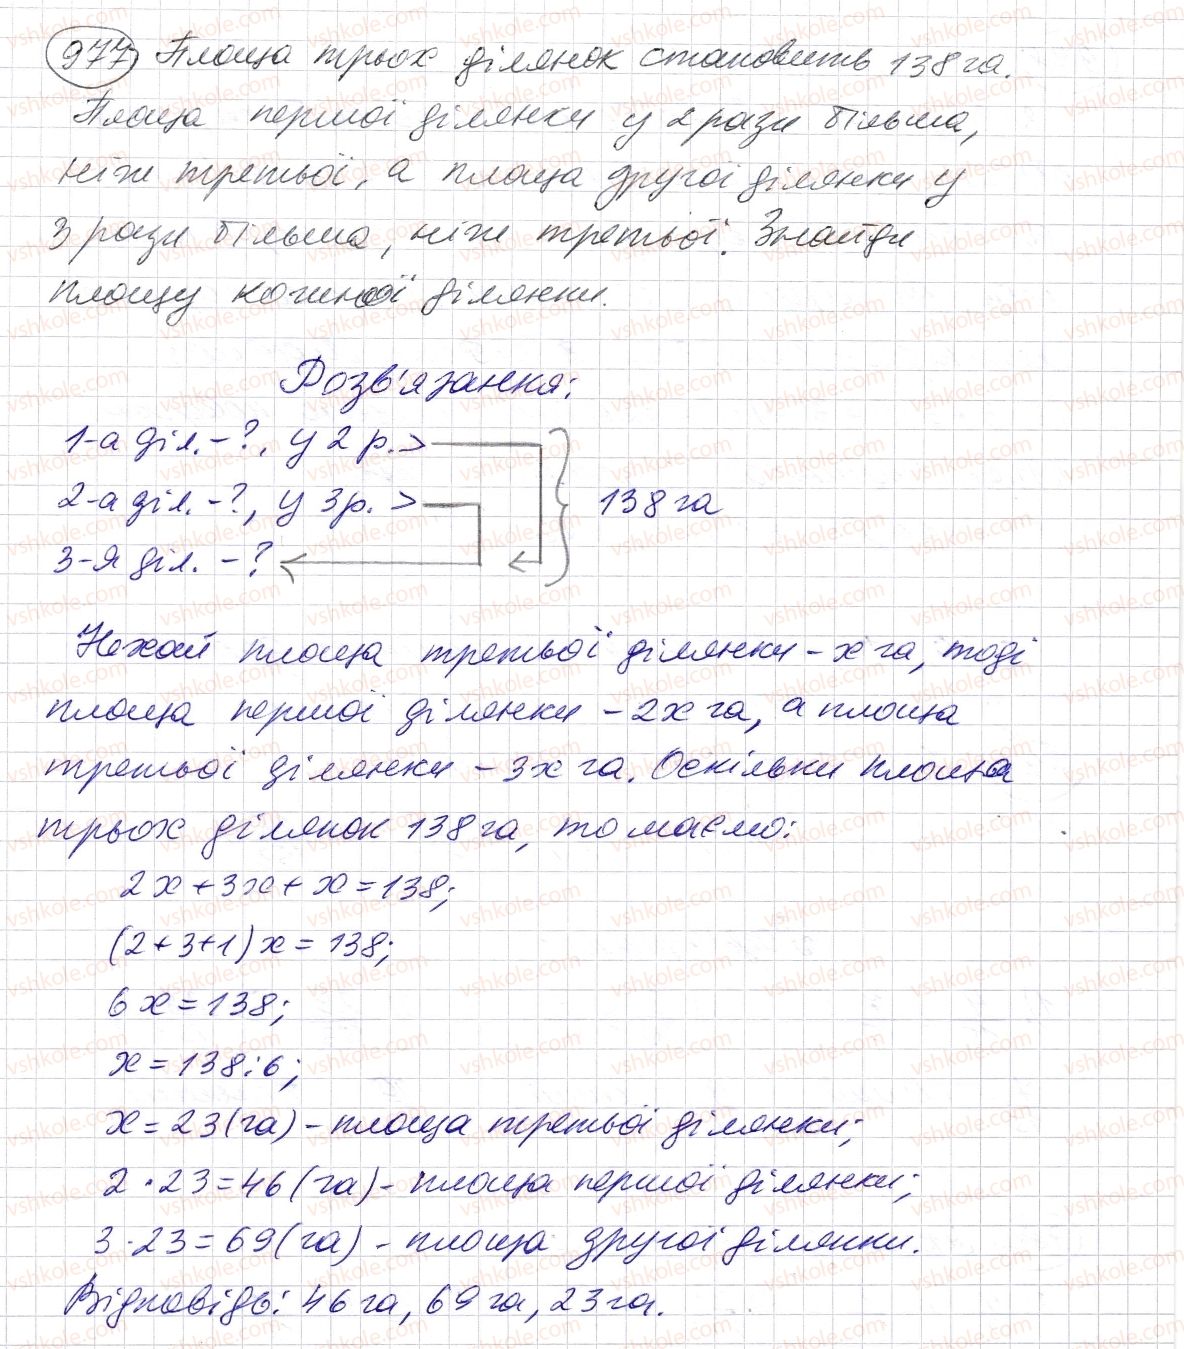 977 Площа трьох ділянок становить 138 га.
Площа першої ділянки у 2 рази більша,
ніж третьої, а площа другої ділянки у
3 рази більша, ніж третьої. Знайди
площу кожної ділянки.
Розв'язання:
1-а діл. - ?, у 2 р. >
2-а діл. - ?, у 3 р. > 138 га
3-я діл. - ?
Нехай площа третьої ділянки - x га, тоді
площа першої ділянки - 2x га, а площа
третьої ділянки - 3x га. Оскільки площа
трьох ділянок 138 га, то маємо:
2x + 3x + x = 138;
(2 + 3 + 1) x = 138;
6x = 138;
x = 138 : 6;
x = 23 (га) - площа третьої ділянки;
2 · 23 = 46 (га) - площа першої ділянки;
3 · 23 = 69 (га) - площа другої ділянки.
Відповідь: 46 га, 69 га, 23 га.